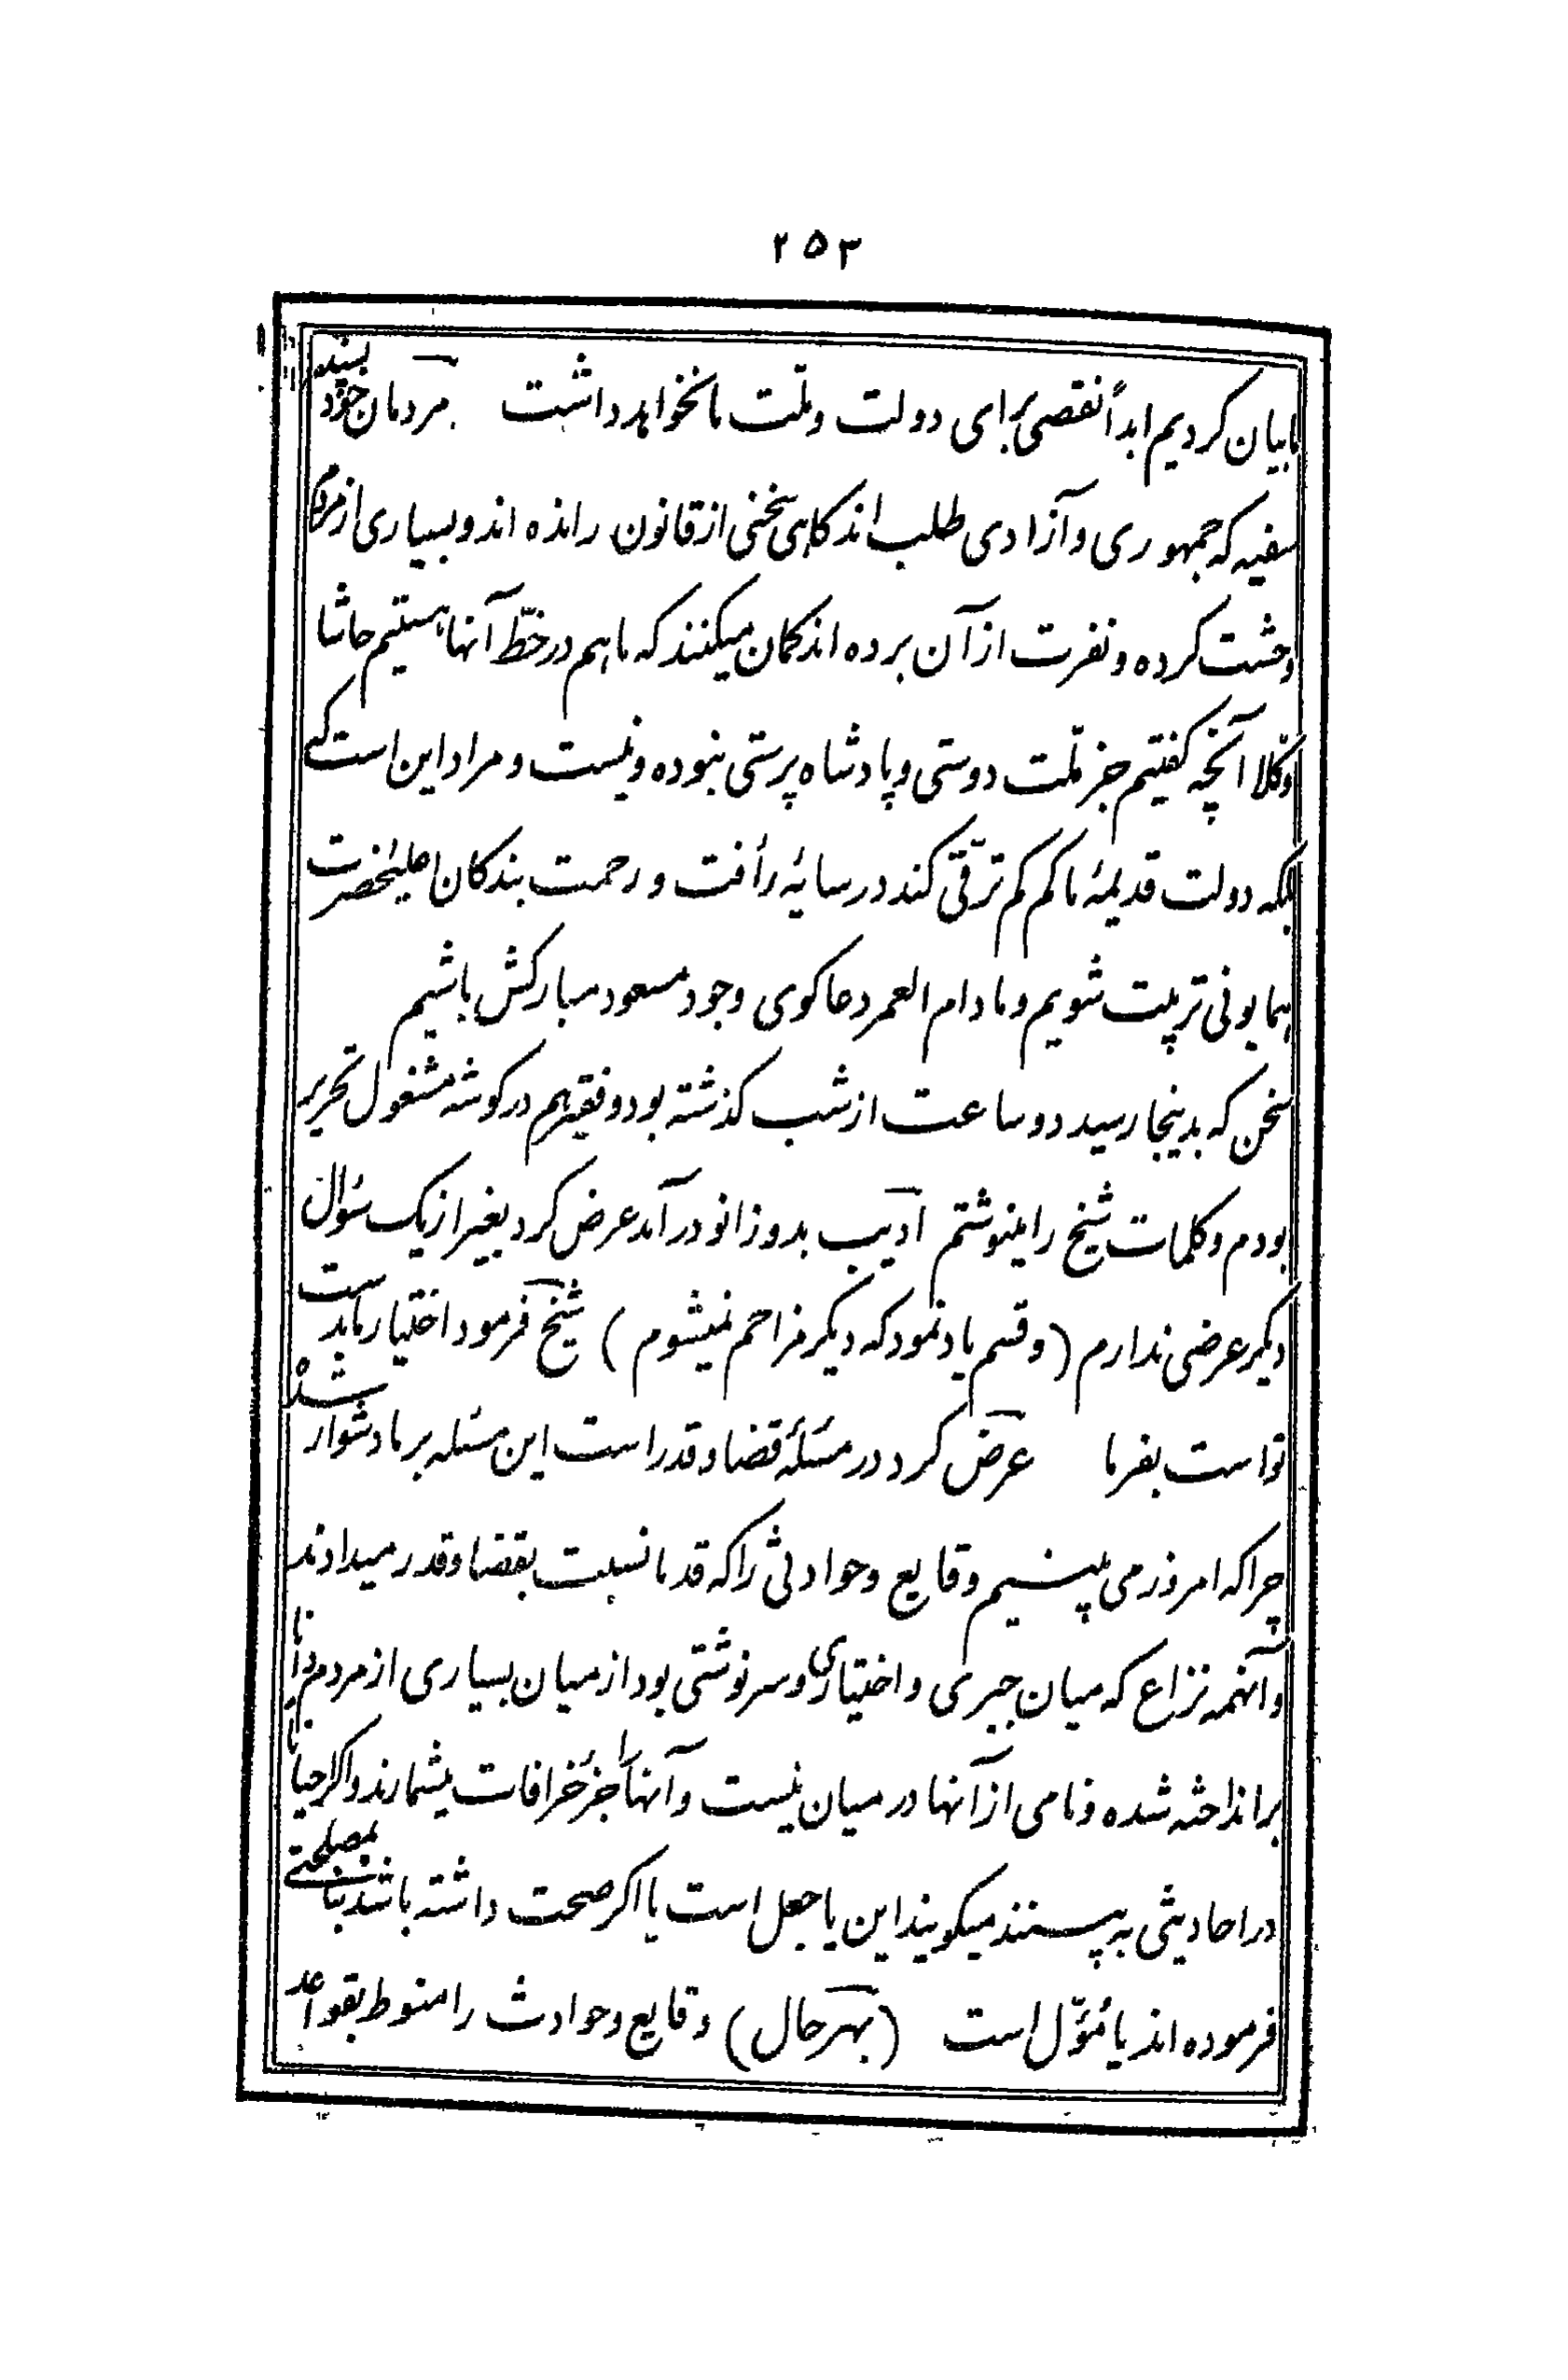 ۲۵۳
ما بیان کردیم ابداً نقصی برای دولت و ملّت ما نخواهد داشت مردمان خودپسند
سفیه که جمهوری و آزادی طلب اند کاهی سخنی از قانون رانده اند و بسیاری از مردم
وحشت کرده و نفرت از آن برده اند کمان میکنند که ما هم در خطّ آنها هستیم حاشا
و کلا آنچه کفتیم جز ملّت دوستی و پادشاه پرستی نبوده و نیست و مراد این است که
بلکه دولت قدیمهٔ ما کم کم ترقّی کند در سایهٔ رأفت و رحمت بندکان اعلیحضرت
همایونی تربیت شویم و مادام العمر دعاکوی وجود مسعود مبارکش باشیم
سخن که بدینجا رسید دو ساعت از شب کذشته بود و فقیر هم در کوشه مشغول تحریر
بودم و کلمات شیخ را مینوشتم ادیب بدو زانو درآمد عرض کرد بغیر از یک سئوال
دیکر عرضی ندارم (و قسم یاد نمود که دیکر مزاحم نمیشوم) شیخ فرمود اختیار ما بدست
تو است بفرما عرض کرد در مسئلهٔ قضا و قدر است این مسئله بر ما دشوار شده
چرا که امروز می بینیم وقایع و حوادثی را که قدما نسبت بقضا و قدر میدادند
و آنهمه نزاع که میان جبری و اختیاری و سرنوشتی بود از میان بسیاری از مردم دانا
برانداخته شده و نامی از آنها در میان نیست و آنها را جزئ خرافات میشمارند و اکر احیاناً
در احادیثی به بینند میکویند این یا جعل است یا اکر صحت داشته باشد بنا بمصلحتی
فرموده اند یا مُؤَّل است (بهر حال) وقایع و حوادث را منوط بقواعد